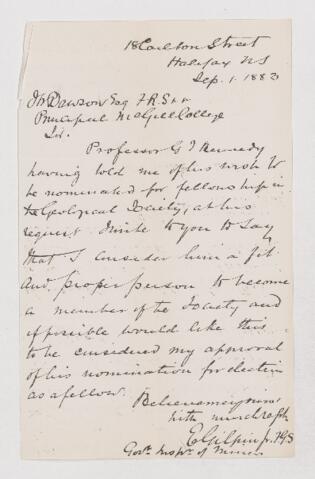 18 Carlton Street
Halifax NS
Sep. 1. 1883
Dawson Esq FRS &c
Principal McGill College
Sir.
Professor G T Kennedy
having told me of his wish to
be nominated for fellowship in
the Geological Society, at his
request I write to you to say
that I consider him a fit
and proper person to become
a member of the Society and
if possible would like this
to be considered my approval
of his nomination for election
as a fellow.
Believe me yours
with much respt
E Gilpin Jr. FGS
Govt. Inspr. of Mines